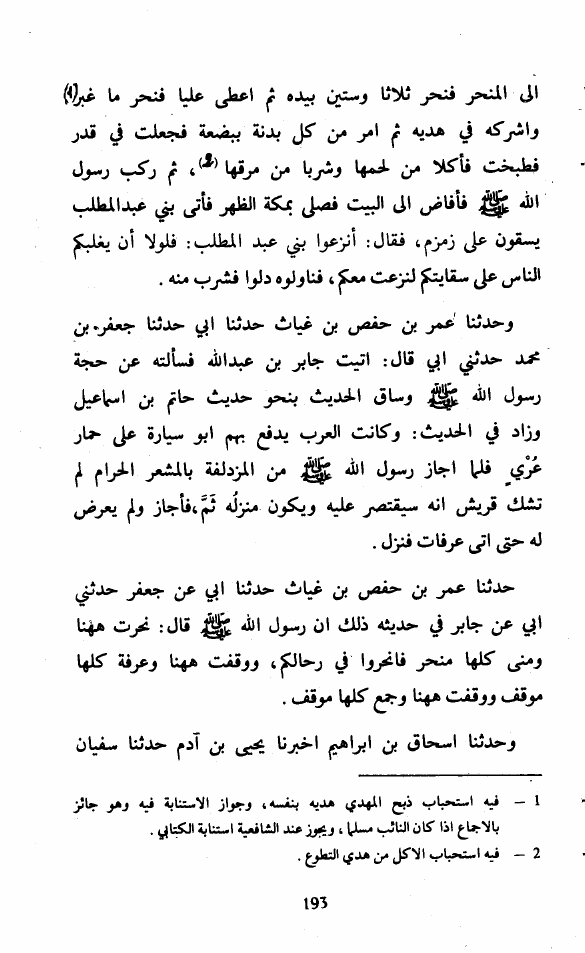 الى المنحر فنحر ثلاثا وستين بيده ثم اعطى عليا فنحر ما غبر(1)
واشركه في هديه ثم امر من كل بدنة ببضعة فجعلت في قدر
فطبخت فأكلا من لحمها وشربا من مرقها(2)، ثم ركب رسول
الله ﷺ فأفاض الى البيت فصلى بمكة الظهر فأتى بني عبدالمطلب
يسقون على زمزم، فقال: أنزعوا بني عبد المطلب: فلولا أن يغلبكم
الناس على سقايتكم لنزعت معكم، فناولوه دلوا فشرب منه.
وحدثنا عمر بن حفص بن غياث حدثنا ابي حدثنا جعفر بن
محمد حدثني ابي قال: اتيت جابر بن عبدالله فسألته عن حجة
رسول الله ﷺ وساق الحديث بنحو حديث حاتم بن اسماعيل
وزاد في الحديث: وكانت العرب يدفع بهم ابو سيارة على حمار
عُرْيٍ فلما اجاز رسول الله ﷺ من المزدلفة بالمشعر الحرام لم
تشك قريش انه سيقتصر عليه ويكون منزلُه ثَمَّ، فأجاز ولم يعرض
له حتى اتى عرفات فنزل.
حدثنا عمر بن حفص بن غياث حدثنا ابي عن جعفر حدثني
ابي عن جابر في حديثه ذلك ان رسول الله ﷺ قال: نحرت ههنا
ومنى كلها منحر فانحروا في رحالكم، ووقفت ههنا وعرفة كلها
موقف ووقفت ههنا وجمع كلها موقف.
وحدثنا اسحاق بن ابراهيم اخبرنا يحيى بن آدم حدثنا سفيان
1 – فيه استحباب ذبح المهدي هديه بنفسه، وجواز الاستنابة فيه وهو جائز
بالاجماع اذا كان النائب مسلما، ويجوز عند الشافعية استنابة الكتابي.
2 – فيه استحباب الاكل من هدي التطوع.
193